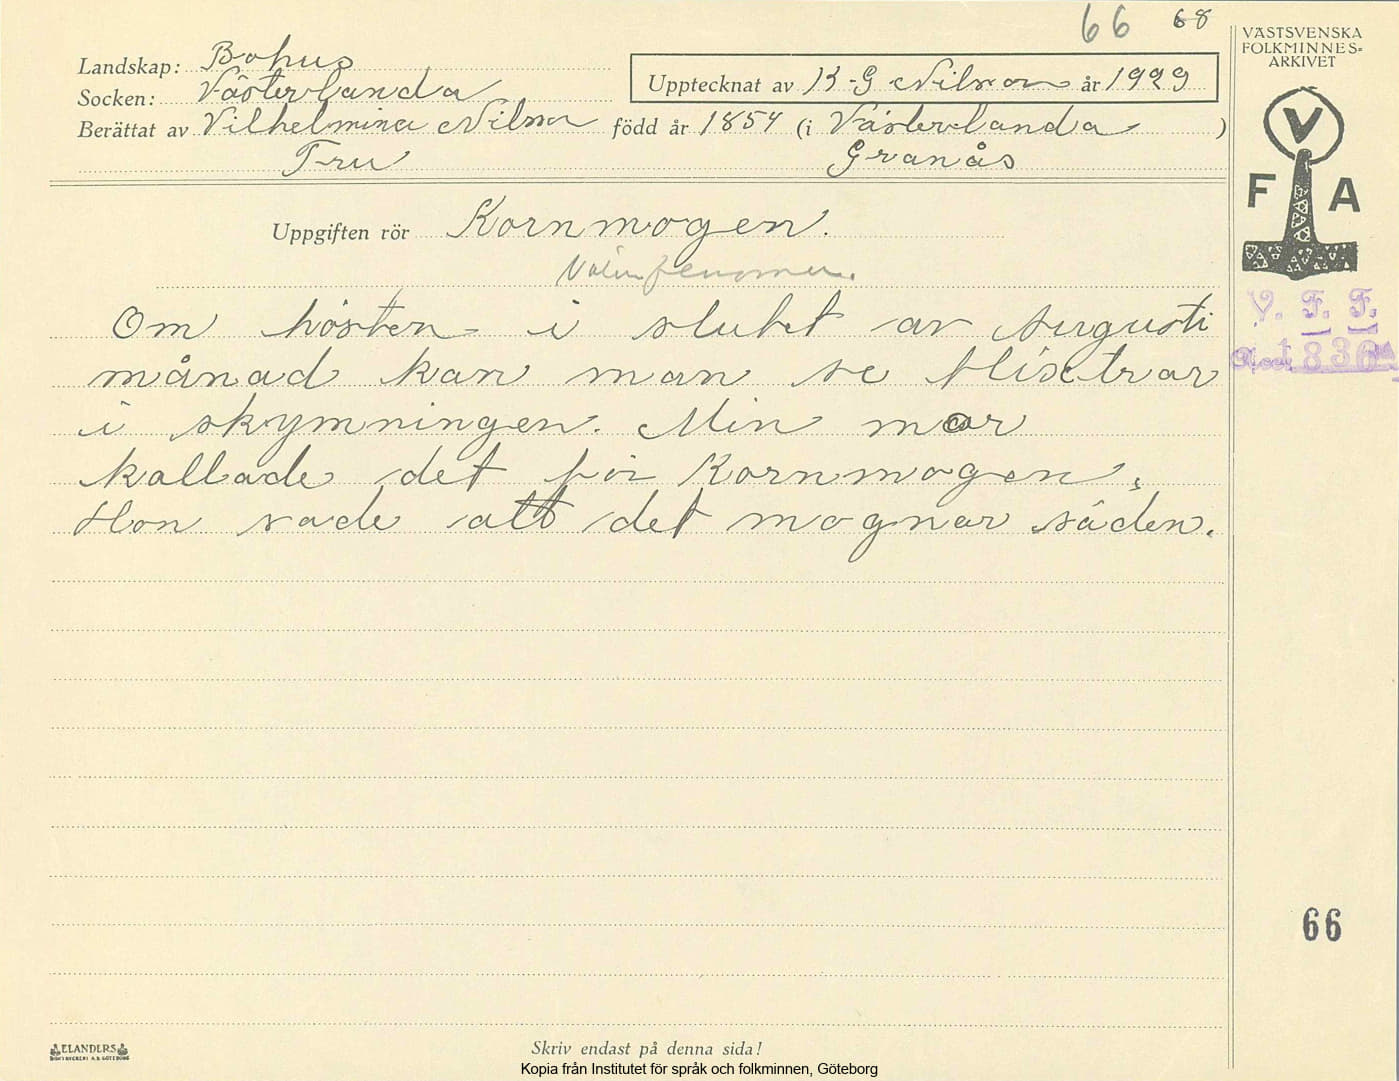 66 68
VÄSTSVENSKA
FOLKMINNES=
ARKIVET
Landskap: Bohus
Socken: Västerlanda
Upptecknat av K-G Nilson år 1929
Berättat av Vilhelmina Nilson född år 1854 (i Västerlanda )
Fru Granås
V
F A
Uppgiften rör Kornmogen.
V. F. F.
836
Om hösten i slutet av Augusti
månad kan man se blixtrar
i skymningen. Min mor
kallade det för Kornmogen.
Hon sade att det mognar säden.
66
ELANDERS
BOKTRYCKERI A.B. GÖTEBORG
Skriv endast på denna sida!
Kopia från Institutet för språk och folkminnen, Göteborg